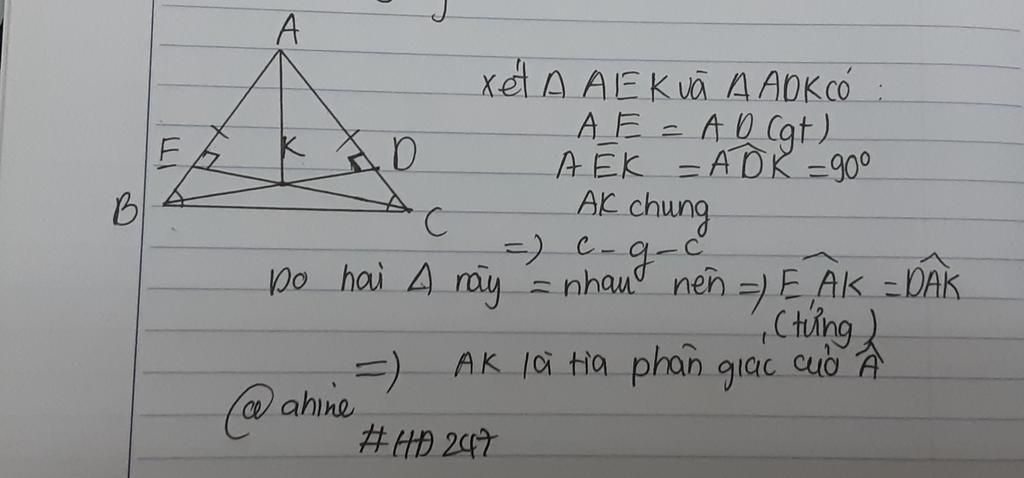 A
E
K
D
B
C
xét Δ AEK và Δ ADK có :
AE = AD (gt)
AÊK = AD̂K = 90°
AK chung
=> c-g-c
Do hai Δ này = nhau nên => EÂK = DÂK
(tứng)
=> AK là tia phân giác cuả Â
@ahine
#HĐ247